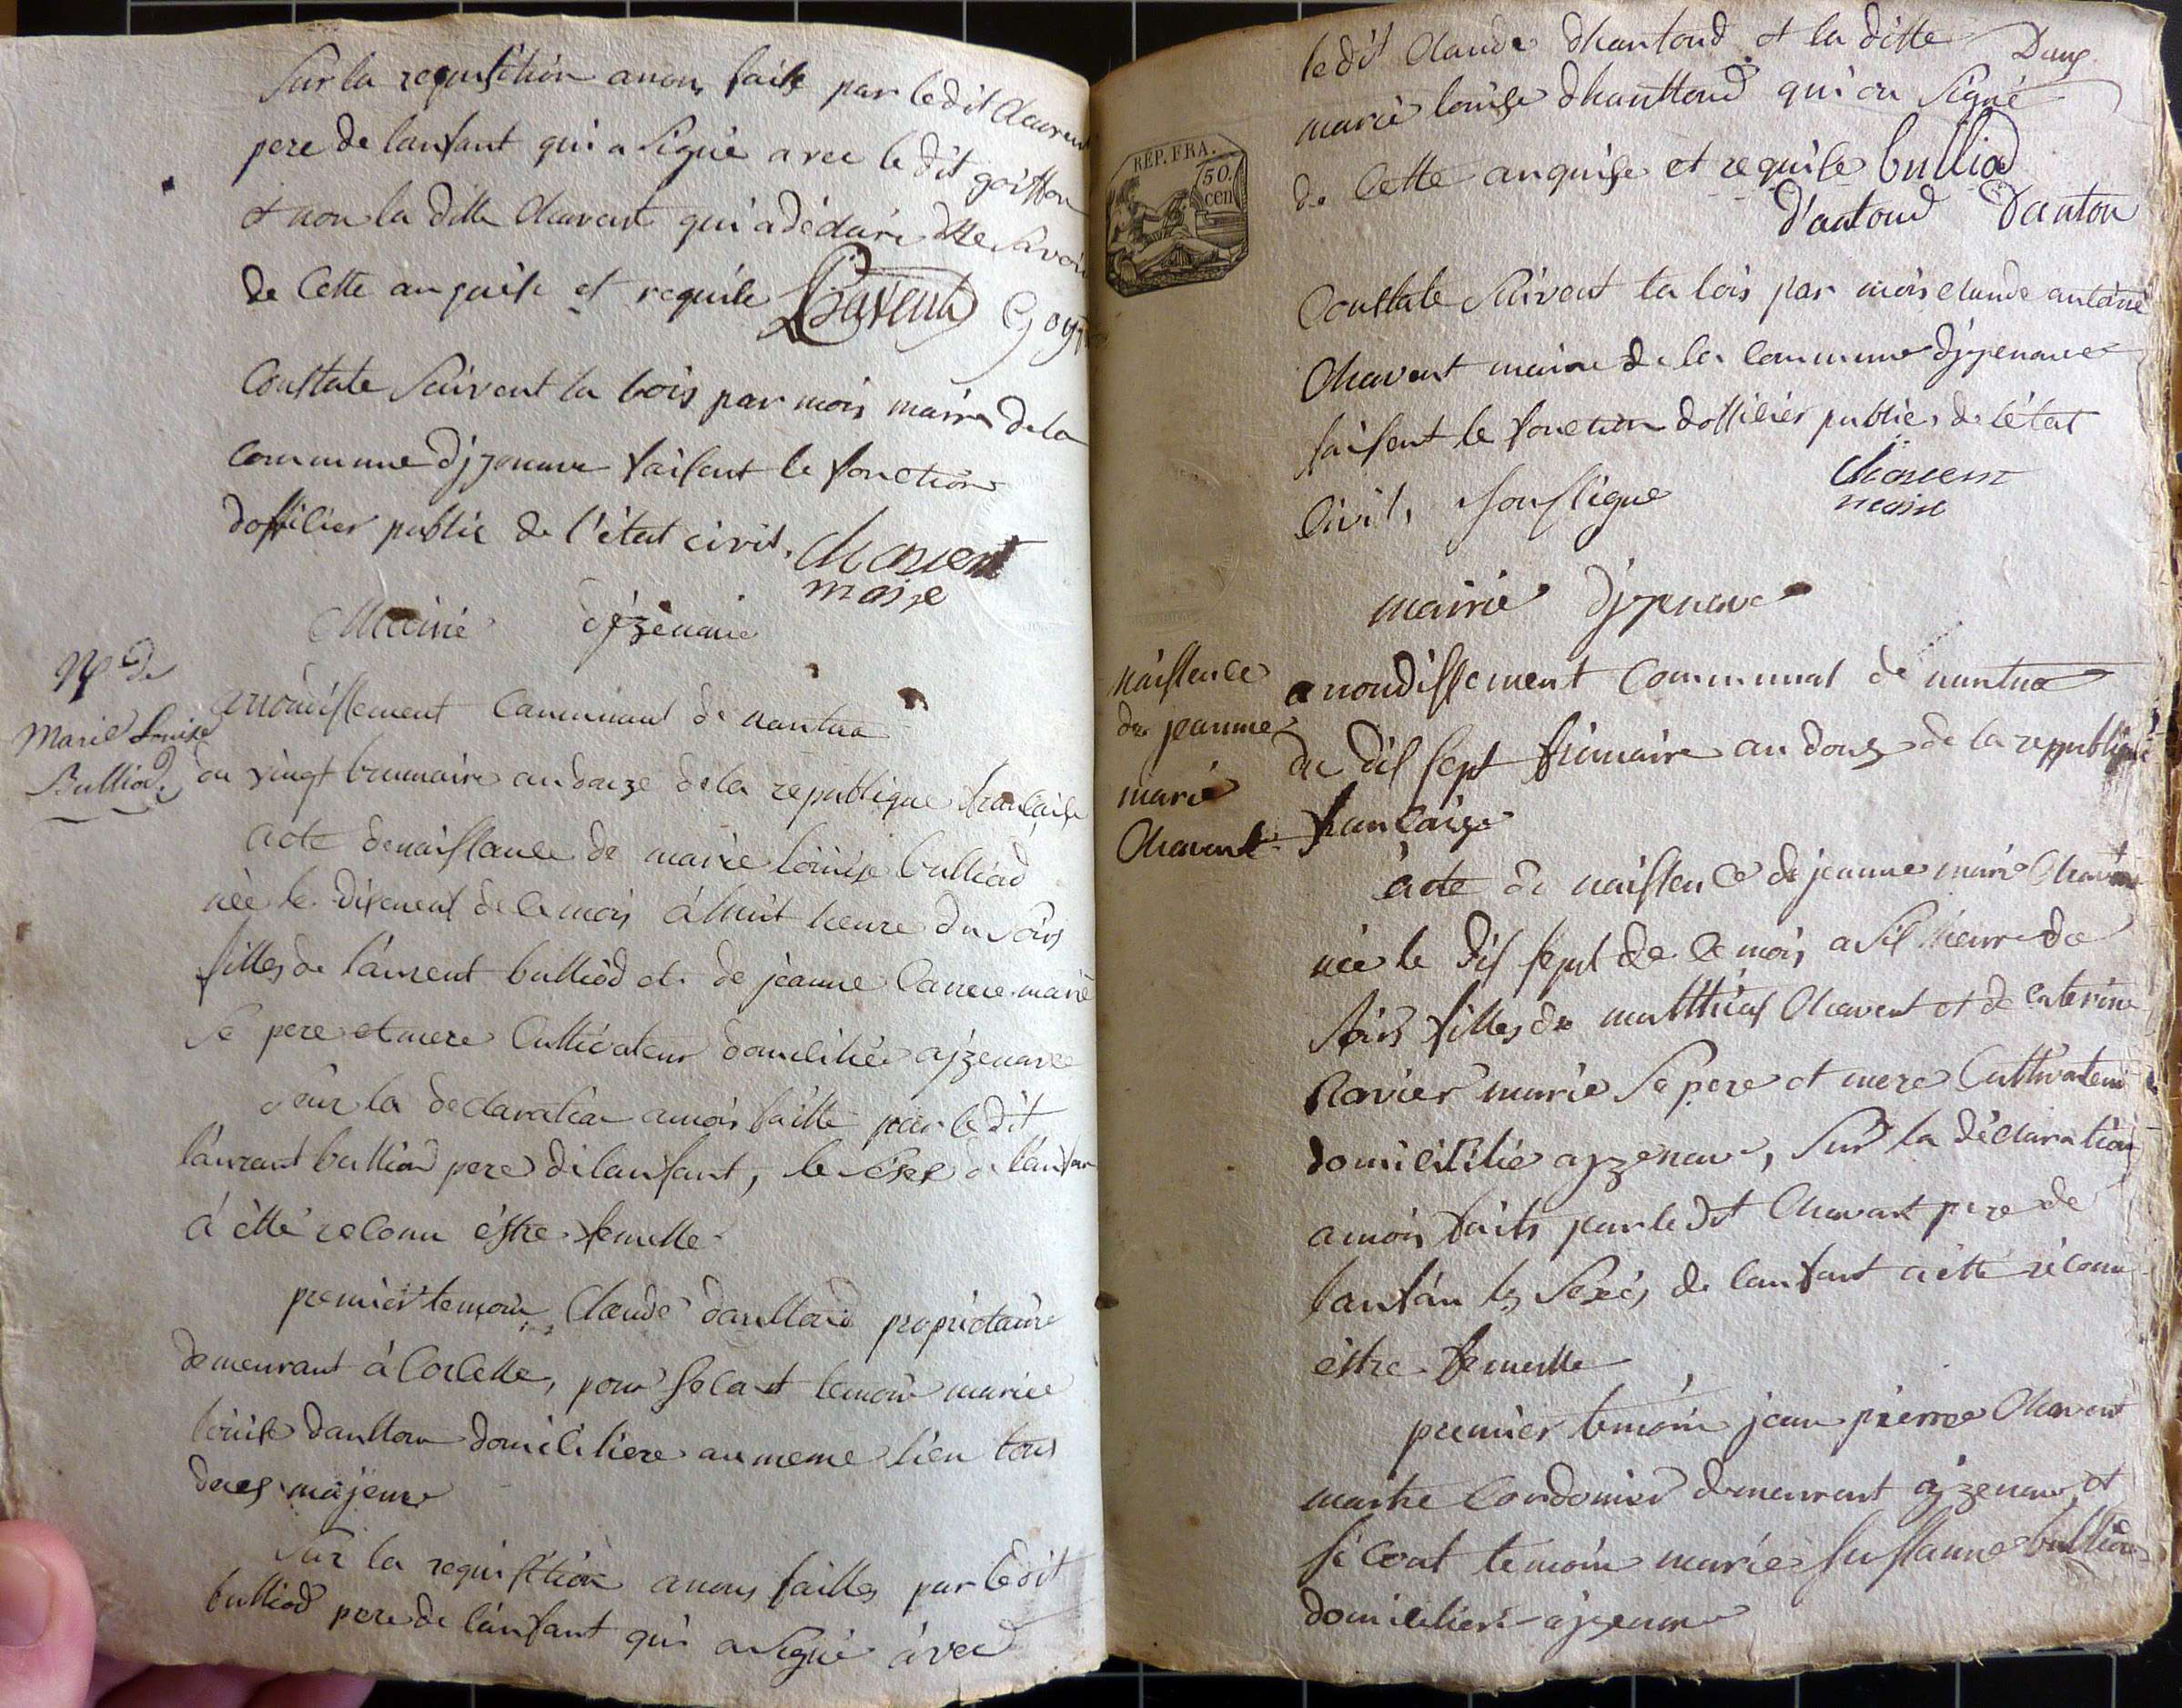 Sur la requisition a nous faite par le dit Chavent
pere de lanfant qui a signé avec le dit goiffon
et non la ditte Chavent qui a déclaré ne savoir
de Cette anquise et requise Chavent Goyf
Constate suivent la lois par mois maire de la
commune djzenave faisent le fonction
dofficier public de l'état civil. Chavent
maire
Mairie d'jzenave
Nce de
Marie Louise
Bulliod.
arrondissement Communal de nantua
du vingt brumaire an douze de la republique francaise
acte denaissance de marie louise bulliod
née le dixneuf de ce mois à huit heure du soir
filles de laurent bulliod et de jeanne marié
se pere et mere Cultivateur domicilié ajzenave
sur la declaration a mois faitte par le dit
laurant bulliod pere de lanfant, le sexe de lanfan
à étté reconu éstre femelle
premier temoin Claude danttoud propriétaire
demeurant à Corcelle, pour secont temoin marie
louise danttou domiciliere au meme lieu tous
deux majeur
Sur la requisition a nous faittes par le dit
bulliod pere de lanfant qui a signé avec
le dit Claude dhantoud et la ditte Dan
marie louise dhanttoud qui on signé
de Cette anquise et requise bulliod
d'antoud Danton
RÉP. FRA.
50.
cen
Constate suivent la lois par mois claude antoine
Chavent maire de la commune djzenave
faisent le fonction dofficier public de l'état
Civil, soussigné Chavent
maire
mairie djzenave
naissence
de jeanne
marie
Chavent
arrondissement Communal de nantua
du dis sept frimaire an douze de la republique
francaise
acte de naissence de jeanne marie Chavent
née le dis sept de ce mois a sis heure du
soir filles de matthieu Chavent et de caterine
Ravier marié se pere et mere Cultivateur
domicilié ajzenave, sur la déclaration
a mois faite par le dit Chavant pere de
lanfan les sexe de lanfant a étté réconu
éstre femelle
premier temoin jean pierre Chavent
maitre Cordonier demeurant ajzenave, et
secont temoin marie sussanne bulliod
domiciliere ajzenave